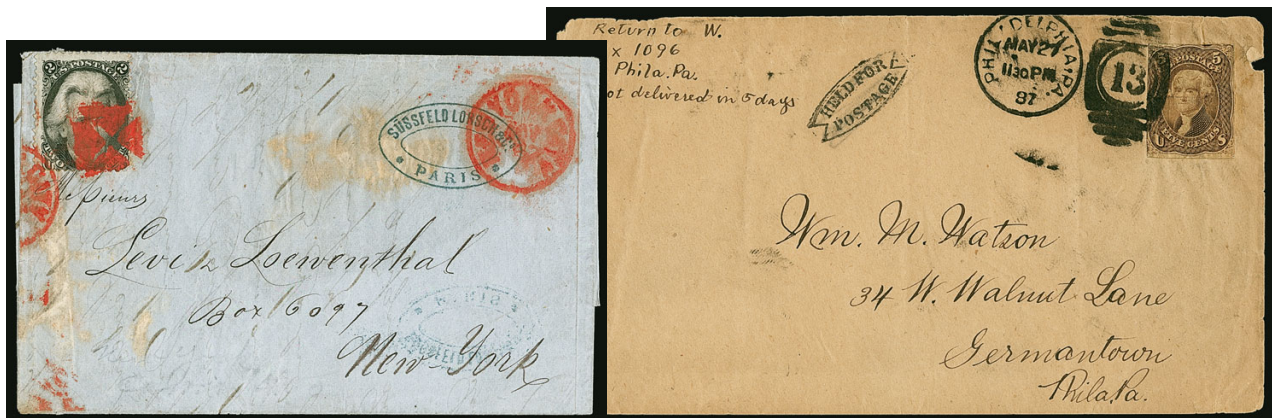 2 U.S. POSTAGE 2
SÜSSFELD LORSCH & Co.
PARIS
Levi & Loewenthal
Box 6097
New York
PARIS
Return to W.
x 1096
Phila. Pa.
ot delivered in 5 days
HELD FOR
POSTAGE
PHILADELPHIA, PA.
MAY 27
1130 PM
87
13
POSTAGE 5
5 FIVE CENTS
Wm. M. Watson
34 W. Walnut Lane
Germantown
Phila. Pa.